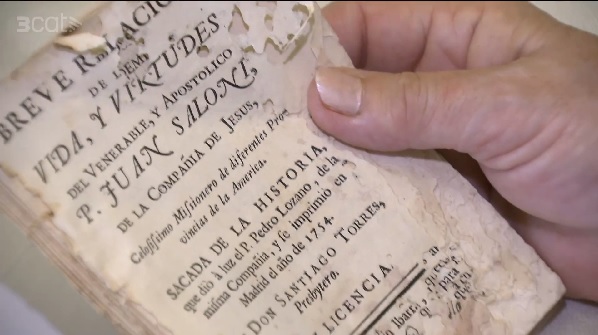 3cat
BREVE RELACIO
DE L
VIDA, Y VIRTUDES
DEL VENERABLE, Y APOSTOLICO
P. JUAN SALONI,
DE LA COMPAÑIA DE JESUS,
Celosissimo Missionero de diferentes Pro-
vincias de la America.
SACADA DE LA HISTORIA,
que diò à luz el P. Pedro Lozano, de la
misma Compañia, y se imprimiò en
Madrid el año de 1754.
DON SANTIAGO TORRES,
Presbytero.
LICENCIA.
Ibarra,
para